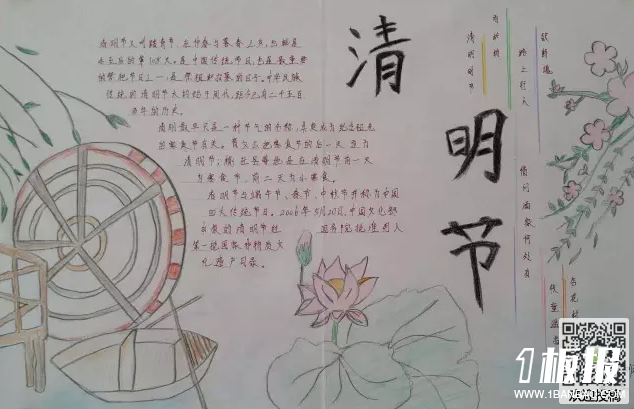 清明节
清明节又叫踏青节，在仲春与暮春之交，也就是
冬至后的第108天。是中国传统节日，也是最重要
的祭祀节日之一，是祭祖和扫墓的日子。中华民族
传统的清明节大约始于周代，距今已有二千五百
多年的历史。
清明最早只是一种节气的名称，其变成纪念祖先
的节日与寒食节有关。晋文公把寒食节的后一天定为
清明节
为寒食节，前二天为小寒食。
清明节与端午节、春节、中秋节并称为中国
四大传统节日。2006年5月20日，中国文化部
申报的清明节经国务院批准列入
第一批国家非物质文
化遗产目录。
清明时节
雨纷纷
路上行人
欲断魂
借问酒家何处有
牧童遥
杏花村
1板报
WWW.1BANBAO.COM